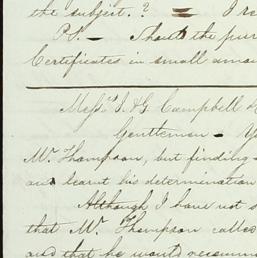 the subject.? = I re
PS. — Should the pur
Certificates in small amou
Messrs. J. & G. Campbell &
Gentlemen - Y
Mr. Thompson, but finding
and learnt his determination
Although I have not s
that Mr. Thompson called
and that he would recomm